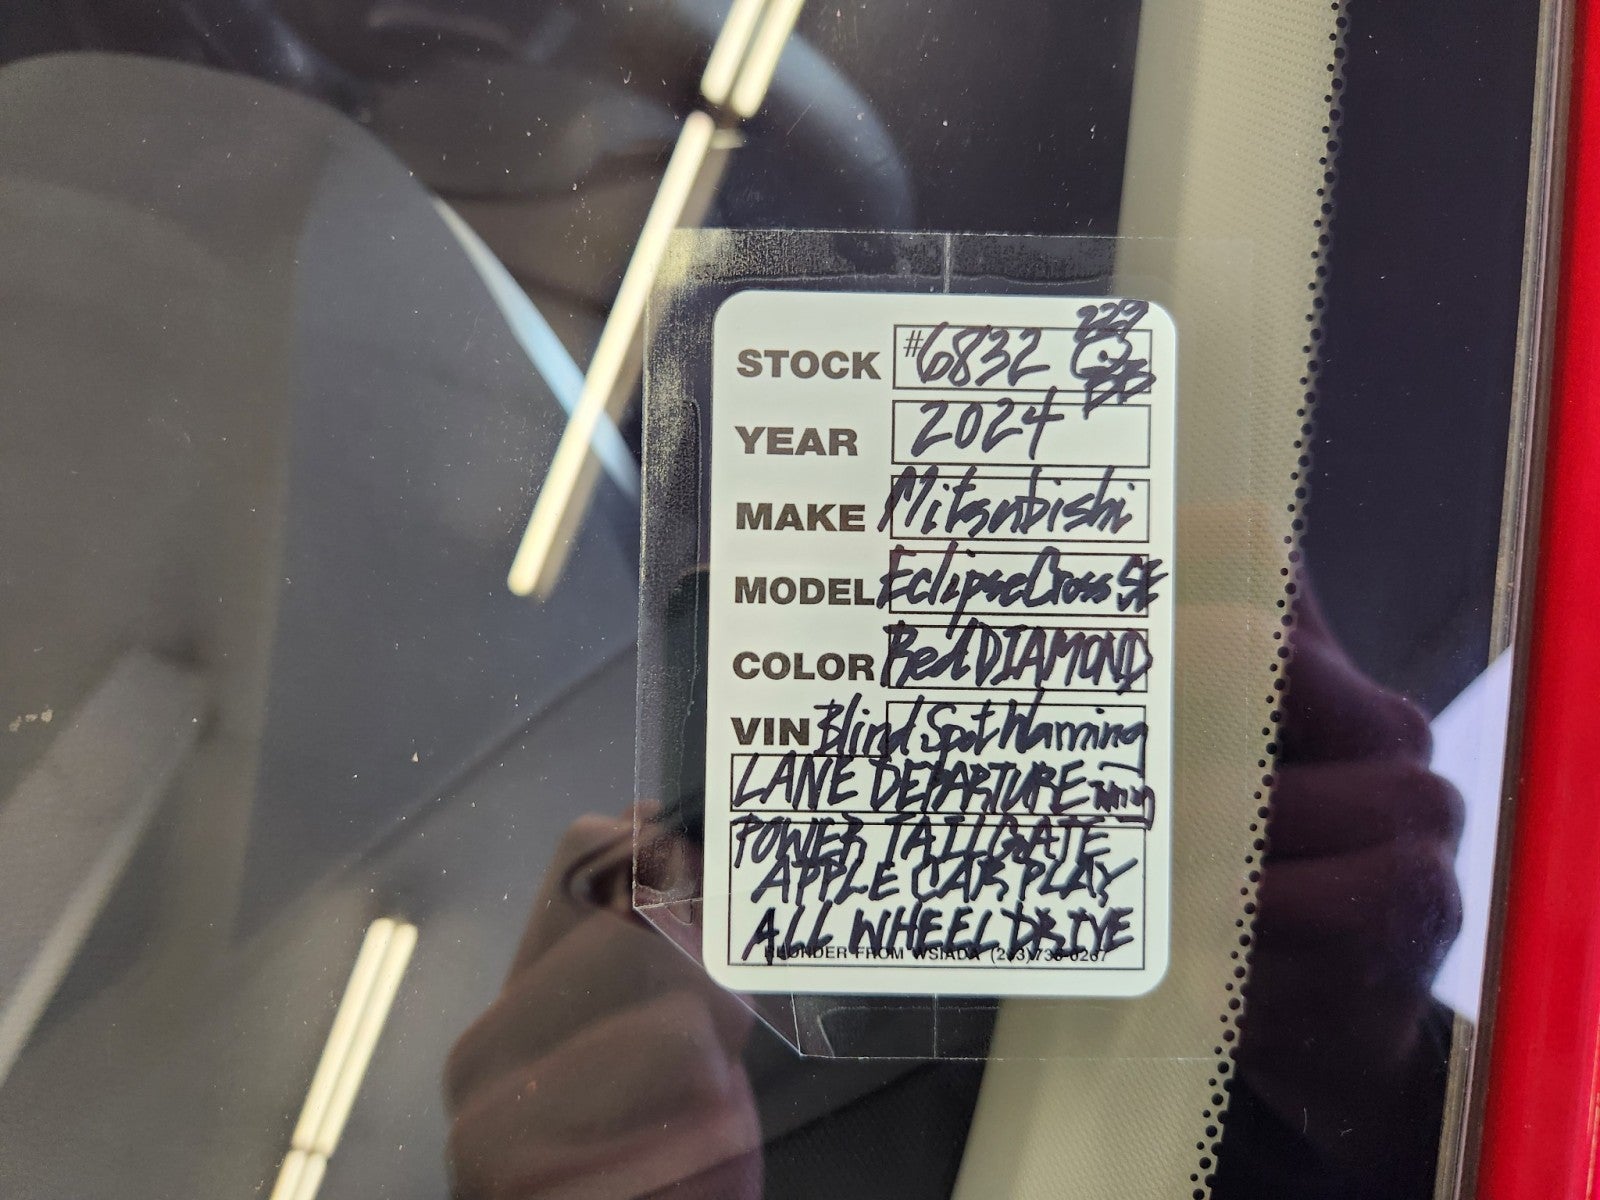 STOCK #6832 229
YEAR 2024
MAKE Mitsubishi
MODEL Eclipse Cross SE
COLOR Red DIAMOND
VIN Blind Spot Warning
LANE DEPARTURE
POWER TAILGATE
APPLE CAR PLAY
ALL WHEEL DRIVE
REORDER FROM WSIADA